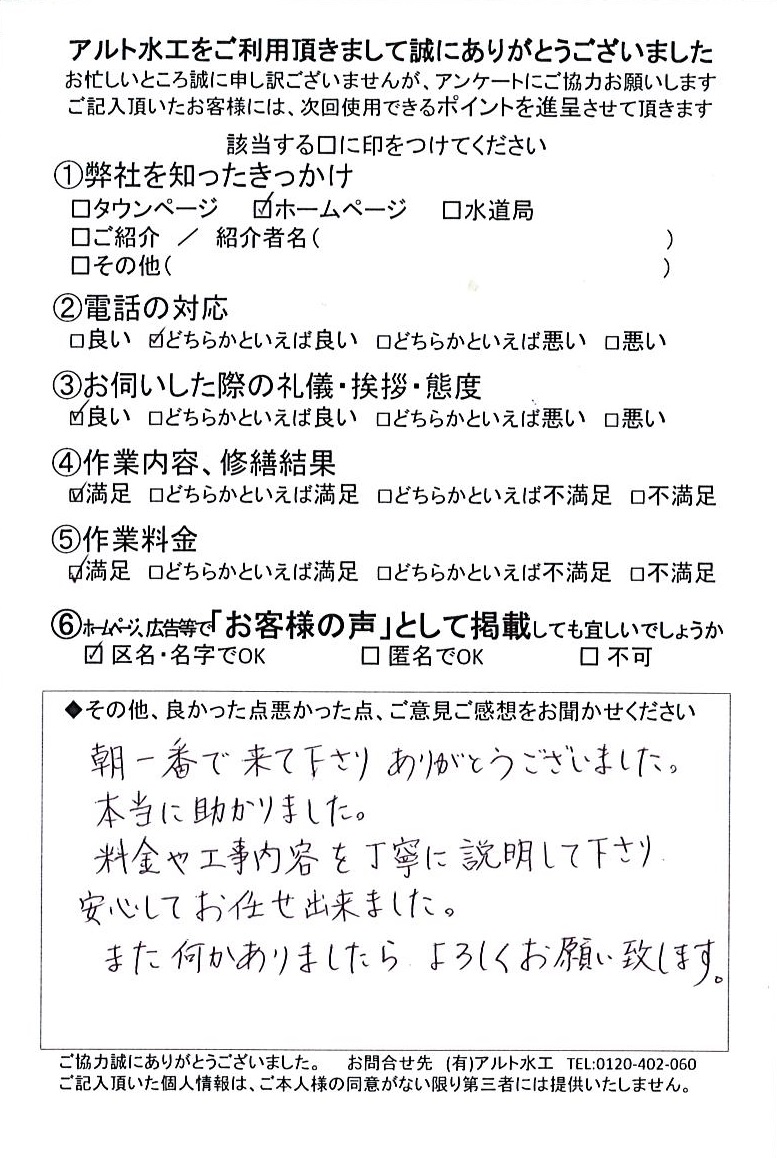 アルト水工をご利用頂きまして誠にありがとうございました
お忙しいところ誠に申し訳ございませんが、アンケートにご協力お願いします
ご記入頂いたお客様には、次回使用できるポイントを進呈させて頂きます
該当する□に印をつけてください
①弊社を知ったきっかけ
□タウンページ ☑ホームページ □水道局
□ご紹介 ／ 紹介者名( )
□その他( )
②電話の対応
□良い ☑どちらかといえば良い □どちらかといえば悪い □悪い
③お伺いした際の礼儀・挨拶・態度
☑良い □どちらかといえば良い □どちらかといえば悪い □悪い
④作業内容、修繕結果
☑満足 □どちらかといえば満足 □どちらかといえば不満足 □不満足
⑤作業料金
☑満足 □どちらかといえば満足 □どちらかといえば不満足 □不満足
⑥ホームページ、広告等で「お客様の声」として掲載しても宜しいでしょうか
☑ 区名・名字でOK □ 匿名でOK □ 不可
◆その他、良かった点悪かった点、ご意見ご感想をお聞かせください
朝一番で来て下さりありがとうございました。
本当に助かりました。
料金や工事内容を丁寧に説明して下さり
安心してお任せ出来ました。
また何かありましたらよろしくお願い致します。
ご協力誠にありがとうございました。 お問合せ先 (有)アルト水工 TEL:0120-402-060
ご記入頂いた個人情報は、ご本人様の同意がない限り第三者には提供いたしません。